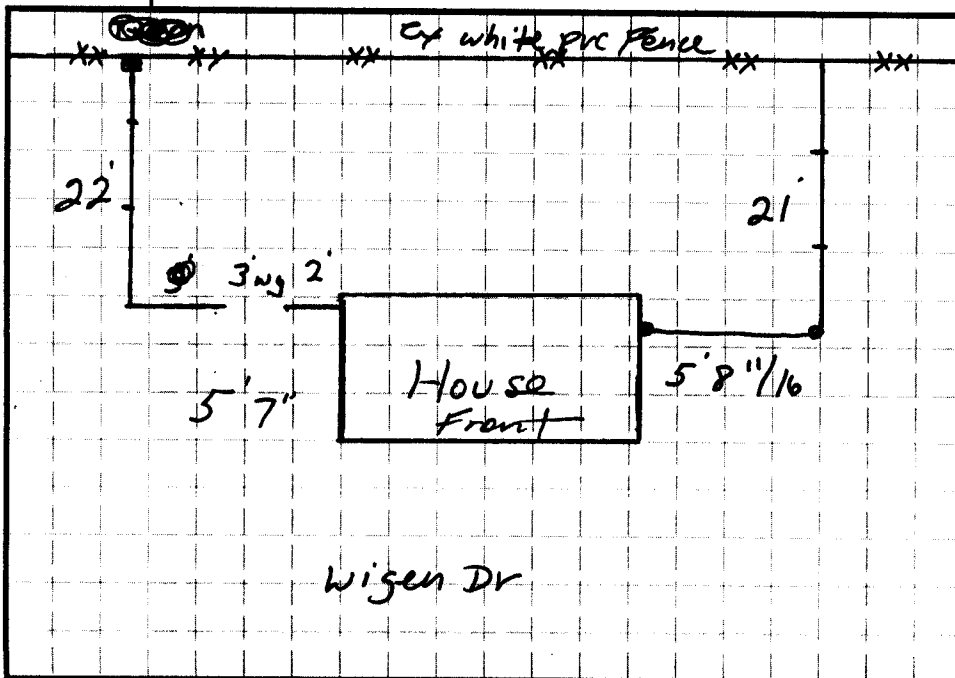 ex white pvc fence
xx xy xx xx xx xx
22'
21'
3'wg 2'
5' 7"
House
Front
5' 8"/16
Wigen Dr